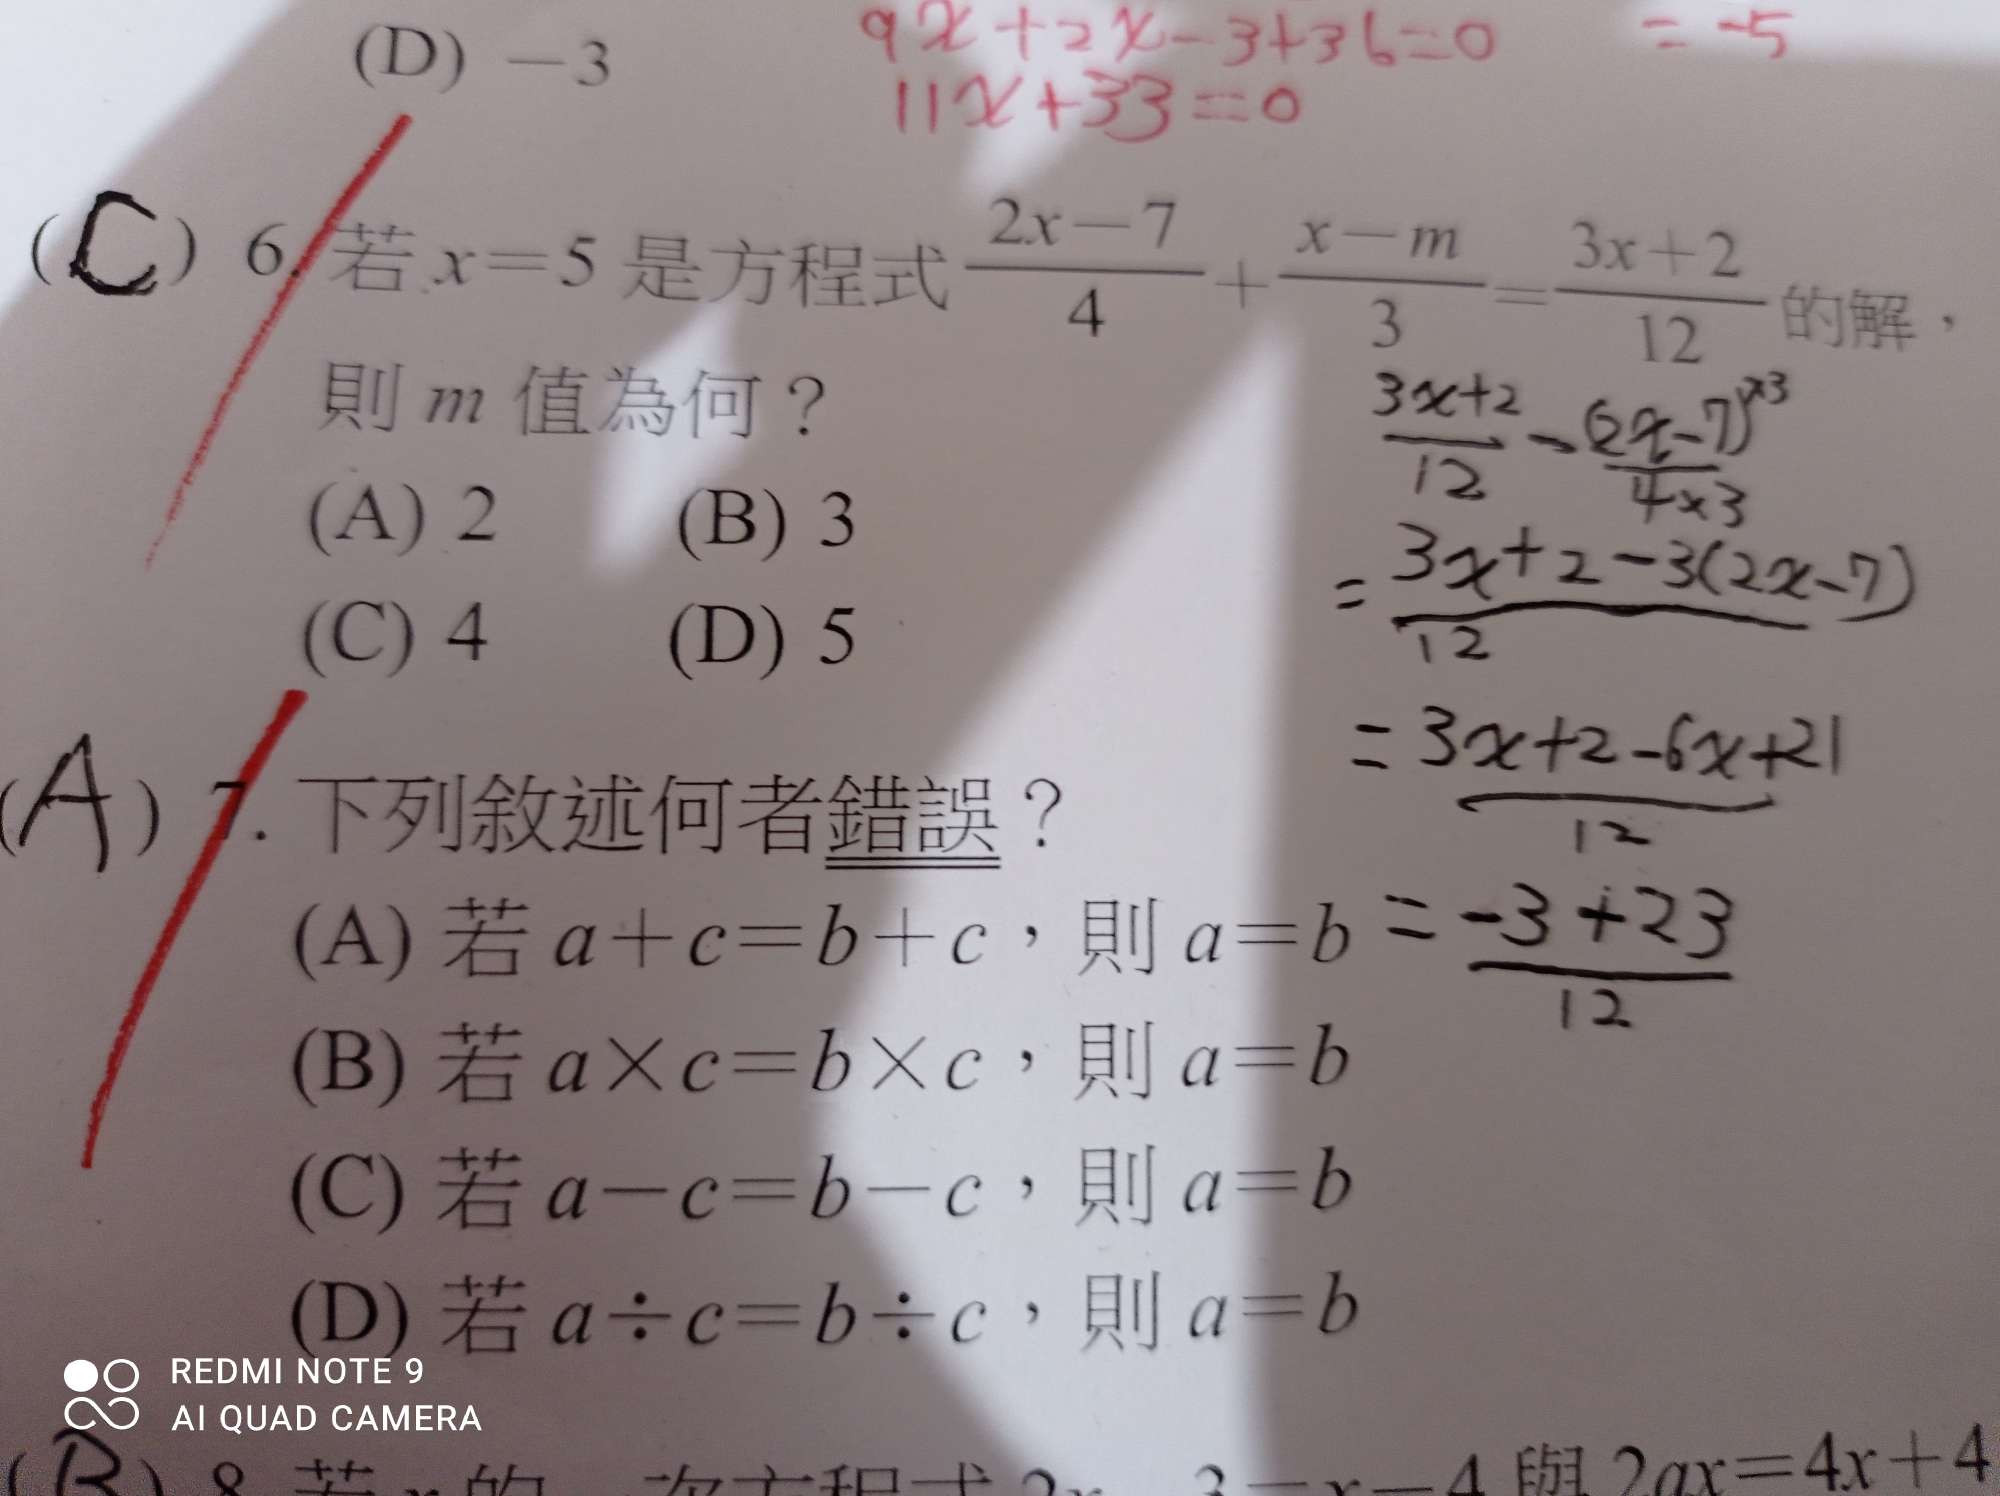 (D) －3
9x+2x-3+36=0
= -5
11x+33=0
(C) 6. 若 x=5 是方程式 (2x－7)/4 + (x－m)/3 = (3x+2)/12 的解，
則 m 值為何？
(A) 2 (B) 3
(C) 4 (D) 5
(3x+2)/12 - (2x-7)×3/4×3
= (3x+2-3(2x-7))/12
= (3x+2-6x+21)/12
= (-3+23)/12
(A) 7. 下列敘述何者錯誤？
(A) 若 a+c=b+c，則 a=b
(B) 若 a×c=b×c，則 a=b
(C) 若 a－c=b－c，則 a=b
(D) 若 a÷c=b÷c，則 a=b
REDMI NOTE 9
AI QUAD CAMERA
(B) 8. 若 x 的一次方程式 3=x－4 與 2ax=4x+4